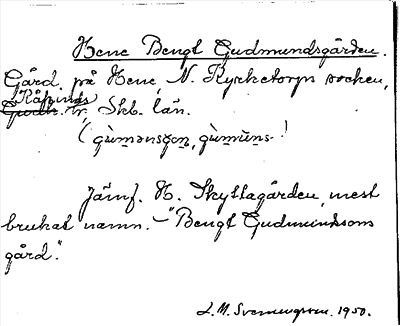 Hene Bengt Gudmundsgården.
Gård på Hene, N. Kyrketorps socken,
Kåkinds
hr, Skb. län.
Jämf. H. Skyttagården, mest
brukat namn. – "Bengt Gudmundssons
gård."
L. M. Svennungsson. 1950.